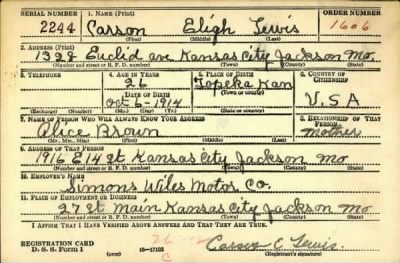 SERIAL NUMBER 1. NAME (Print) ORDER NUMBER
2244 Carson Eligh Lewis 1606
(First) (Middle) (Last)
2. ADDRESS (Print)
1322 Euclid ave Kansas City Jackson Mo.
(Number and street or R. F. D. number) (Town) (County) (State)
3. TELEPHONE 4. AGE IN YEARS 5. PLACE OF BIRTH 6. COUNTRY OF CITIZENSHIP
26 Topeka
DATE OF BIRTH (Town or county)
Oct-6-1914 Kan U.S.A
(Exchange) (Number) (Mo.) (Day) (Yr.) (State or country)
7. NAME OF PERSON WHO WILL ALWAYS KNOW YOUR ADDRESS 8. RELATIONSHIP OF THAT PERSON
Alice Brown mother
(Mr., Mrs., Miss) (First) (Middle) (Last)
9. ADDRESS OF THAT PERSON
1916 E 14 St Kansas City Jackson Mo
(Number and street or R. F. D. number) (Town) (County) (State)
10. EMPLOYER'S NAME
Simons Wiles Motor Co.
11. PLACE OF EMPLOYMENT OR BUSINESS
27 St Main Kansas City Jackson Mo
(Number and street or R. F. D. number) (Town) (County) (State)
I AFFIRM THAT I HAVE VERIFIED ABOVE ANSWERS AND THAT THEY ARE TRUE.
REGISTRATION CARD
D. S. S. Form 1 (over) 16-17105 Carson E Lewis.
(Registrant's signature)